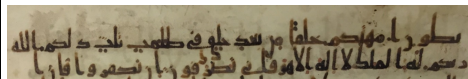 بطون امهتكم خلقا من بعد خلق في ظلمت ثلث ذلكم الله
ربكم له الملك لا اله الا هو فانى تصرفون ان تكفروا فان ا